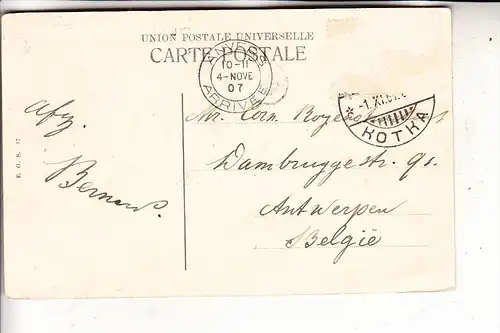 UNION POSTALE UNIVERSELLE
CARTE POSTALE
ANVERS
10-11
4-NOVE
07
ARRIVÉE
-1.XI.07.
KOTKA
Mr. Corn.
Dambruggestr. 91.
Antwerpen
België
afz.
E. G. S.